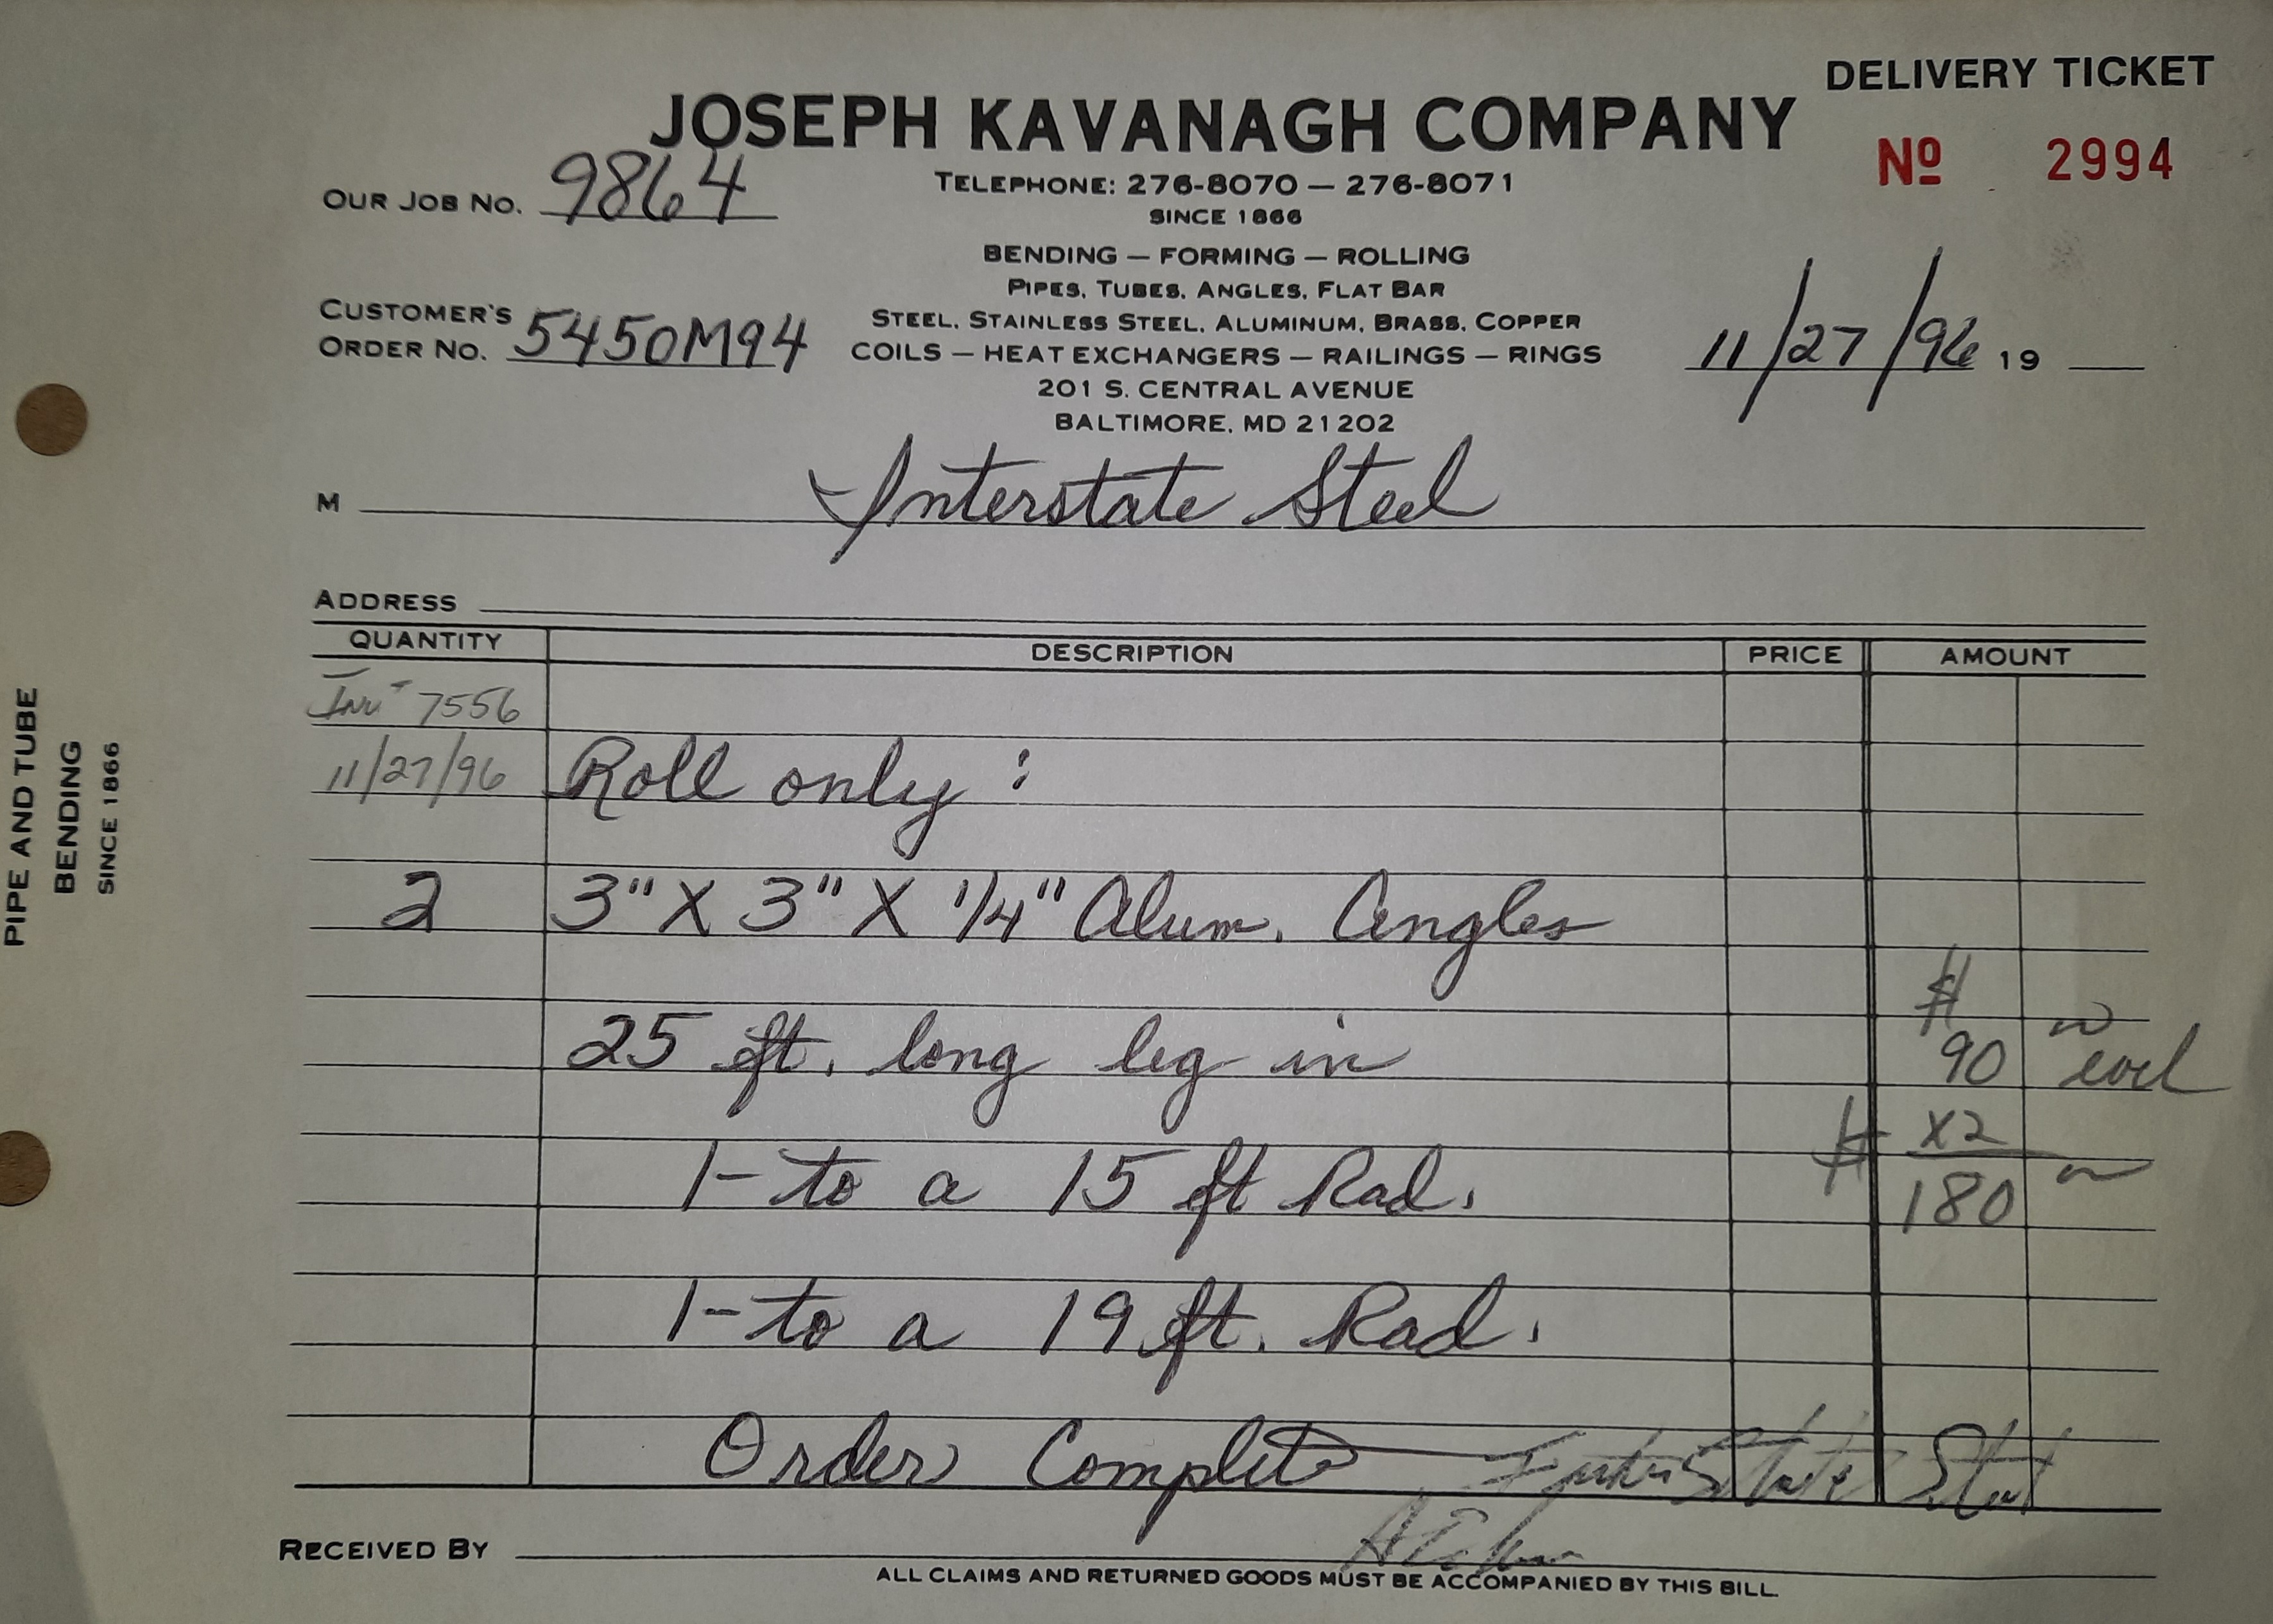 DELIVERY TICKET
JOSEPH KAVANAGH COMPANY
Nº 2994
OUR JOB NO. 9864
TELEPHONE: 276-8070 — 276-8071
SINCE 1866
BENDING — FORMING — ROLLING
PIPES, TUBES, ANGLES, FLAT BAR
CUSTOMER'S
ORDER NO. 5450M94
STEEL, STAINLESS STEEL, ALUMINUM, BRASS, COPPER
COILS — HEAT EXCHANGERS — RAILINGS — RINGS
11/27/96 19
201 S. CENTRAL AVENUE
BALTIMORE, MD 21202
M Interstate Steel
ADDRESS
QUANTITY DESCRIPTION PRICE AMOUNT
Inv # 7556
11/27/96 Roll only :
2 3" X 3" X 1/4" Alum. Angles
25 ft. long leg in
$ 90 each
X2
1- to a 15 ft Rad.
$ 180
1- to a 19 ft. Rad.
Order Complete InterState Steel
RECEIVED BY
ALL CLAIMS AND RETURNED GOODS MUST BE ACCOMPANIED BY THIS BILL.
PIPE AND TUBE
BENDING
SINCE 1866